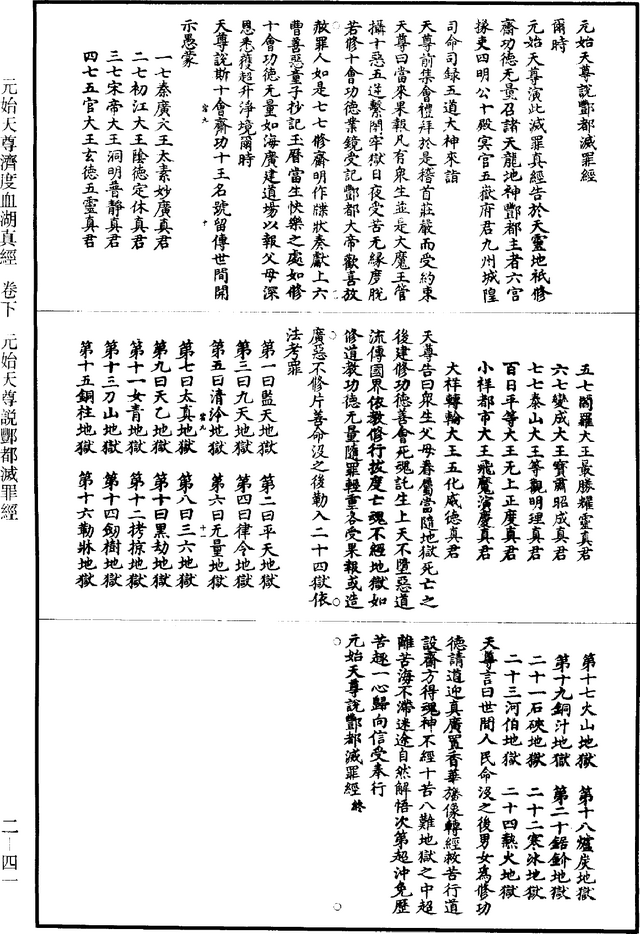 元始天尊説酆都滅罪經
爾時
元始天尊演此滅罪真經告於天靈地祇修
齋功德无量召諸天龍地神酆都主者六宮
掾吏四明公十殿冥官五嶽府君九州城隍
司命司録五道大神來詣
天尊前集會禮拜於是稽首莊嚴而受約束
天尊曰當來果報凡有衆生並是大魔王管
攝十惡五逆繫閉牢獄日夜受苦无緣度脱
若修十會功德業鏡受記酆都大帝歡喜放
赦罪人如是七七修齋明作牒狀奏獻上六
曹善惡童子抄記王曆當生快樂之處如修
十會功德无量如海廣建道場以報父母深
恩悉獲超升淨境爾時
天尊說斯十會齋功十王名號留傳世間開
示愚蒙
一七秦廣大王太素妙廣真君
二七初江大王陰德定休真君
三七宋帝大王洞明普靜真君
四七五官大王玄德五靈真君
五七閻羅大王最勝耀靈真君
六七變成大王寶肅昭成真君
七七泰山大王等觀明理真君
百日平等大王无上正度真君
小祥都市大王飛魔演慶真君
大祥轉輪大王五化威德真君
天尊告曰衆生父母眷屬當隨地獄死亡之
後建修功德善會死魂託生上天不墮惡道
流傳國界依教修行拔度亡魂不經地獄如
修道教功德无量隨罪輕重各受果報或造
廣惡不修片善命没之後勒入二十四獄依
法考罪
第一曰監天地獄 第二曰平天地獄
第三曰九天地獄 第四曰律令地獄
第五曰清泠地獄 第六曰无量地獄
第七曰太真地獄 第八曰三六地獄
第九曰天乙地獄 第十曰黑劫地獄
第十一女青地獄 第十二拷掠地獄
第十三刀山地獄 第十四劒樹地獄
第十五銅柱地獄 第十六勒牀地獄
第十七火山地獄 第十八爐炭地獄
第十九銅汁地獄 第二十鋸地獄
二十一石硤地獄 二十二寒冰地獄
二十三河伯地獄 二十四熱火地獄
天尊言曰世間人民命没之後男女爲修功
德請道迎真廣置香華旛像轉經救苦行道
設齋方得魂神不經十苦八難地獄之中超
離苦海不滯迷途自然解悟次第超沖免歷
苦趣一心歸向信受奉行
元始天尊説酆都滅罪經 終
元始天尊濟度血湖真經 卷下 元始天尊説酆都滅罪經
二—四一